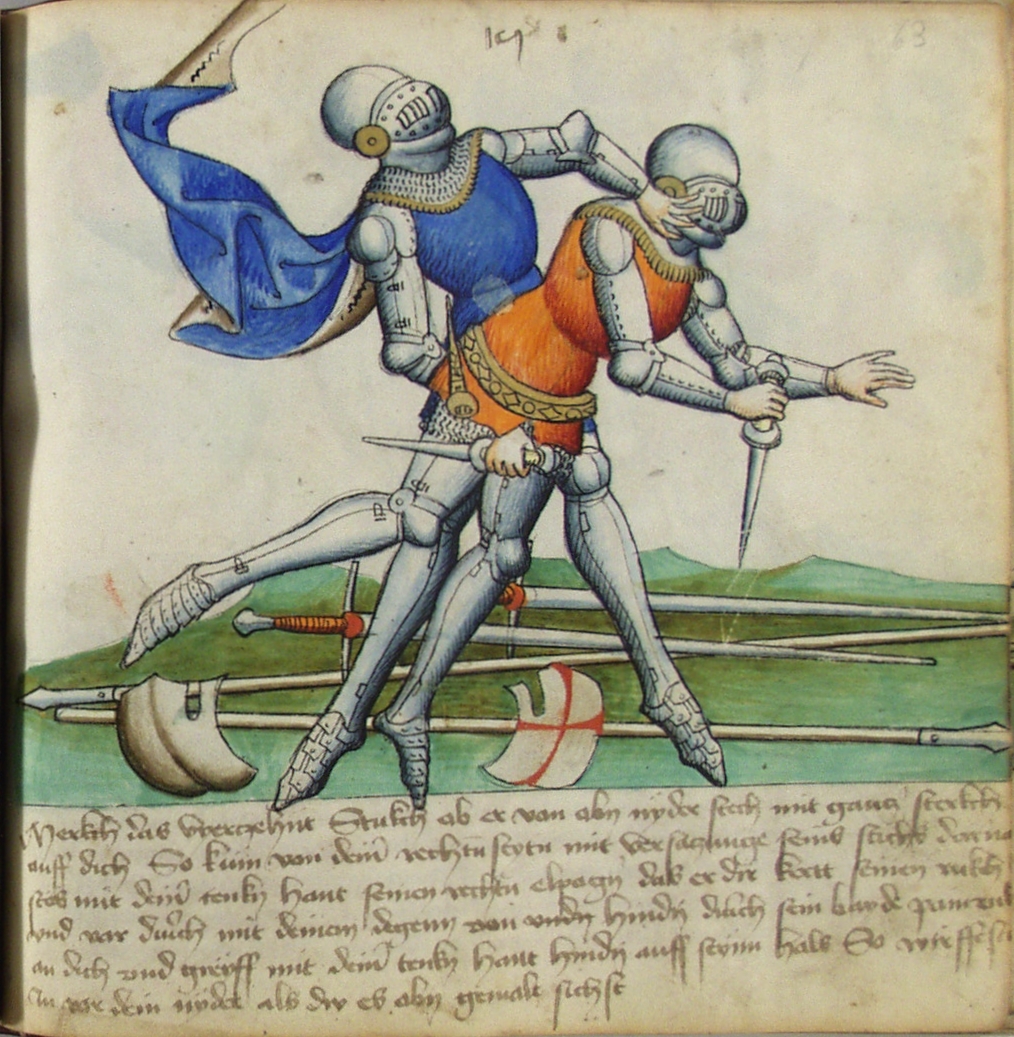 63
Merckh das vierzehnt Stukch ob er von obn nyder stech mit gantz sterkch
auff dich So kum von deim rechtn seytn mit versaczunge seins stichs
stos mit deim tenkn hant seinen rechtn elpogn das er dir kert seinen rukh
und var durch mit deinem degenn von undn hindn durch sein bayde
an dich und greyff mit deim tenkn hant hindn auff seinn hals So wirffstu
in vor dein nyder als du es obn gemalt sichst